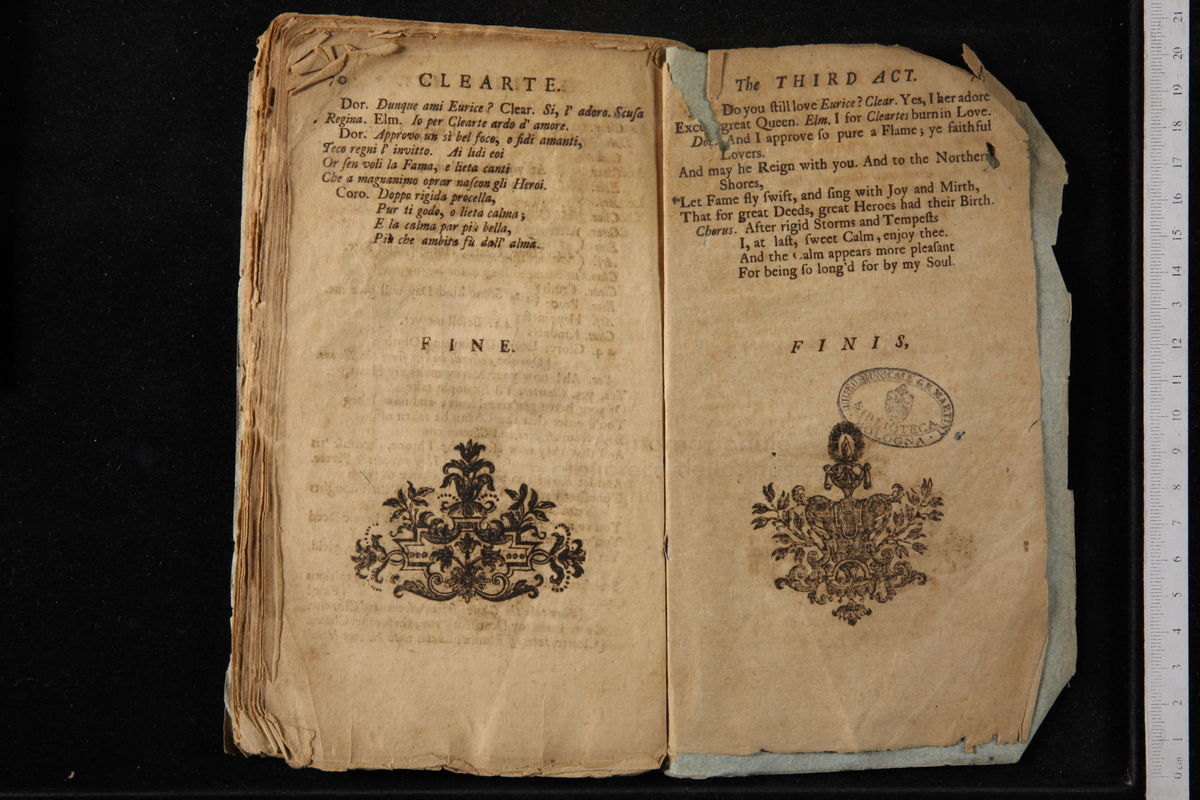 CLEARTE.
Dor. Dunque ami Eurice? Clear. Si, l' adoro. Scusa
Regina. Elm. Io per Clearte ardo d' amore.
Dor. Approvo un sì bel foco, o fidi amanti,
Teco regni l' invitto. Ai lidi eoi
Or sen voli la Fama, e lieta canti
Che a magnanimo oprar nascon gli Heroi.
Coro. Doppo rigida procella,
Pur ti godo, o lieta calma;
E la calma par più bella,
Più che ambita fù dall' alma.
FINE.
The THIRD ACT.
Do you ſtill love Eurice? Clear. Yes, I her adore
great Queen. Elm. I for Cleartes burn in Love.
And I approve ſo pure a Flame; ye faithful
Lovers.
And may he Reign with you. And to the Northern
Shores,
Let Fame fly ſwift, and ſing with Joy and Mirth,
That for great Deeds, great Heroes had their Birth.
Chorus. After rigid Storms and Tempeſts
I, at laſt, ſweet Calm, enjoy thee.
And the Calm appears more pleaſant
For being ſo long'd for by my Soul.
FINIS,
BIBLIOTECA
BOLOGNA